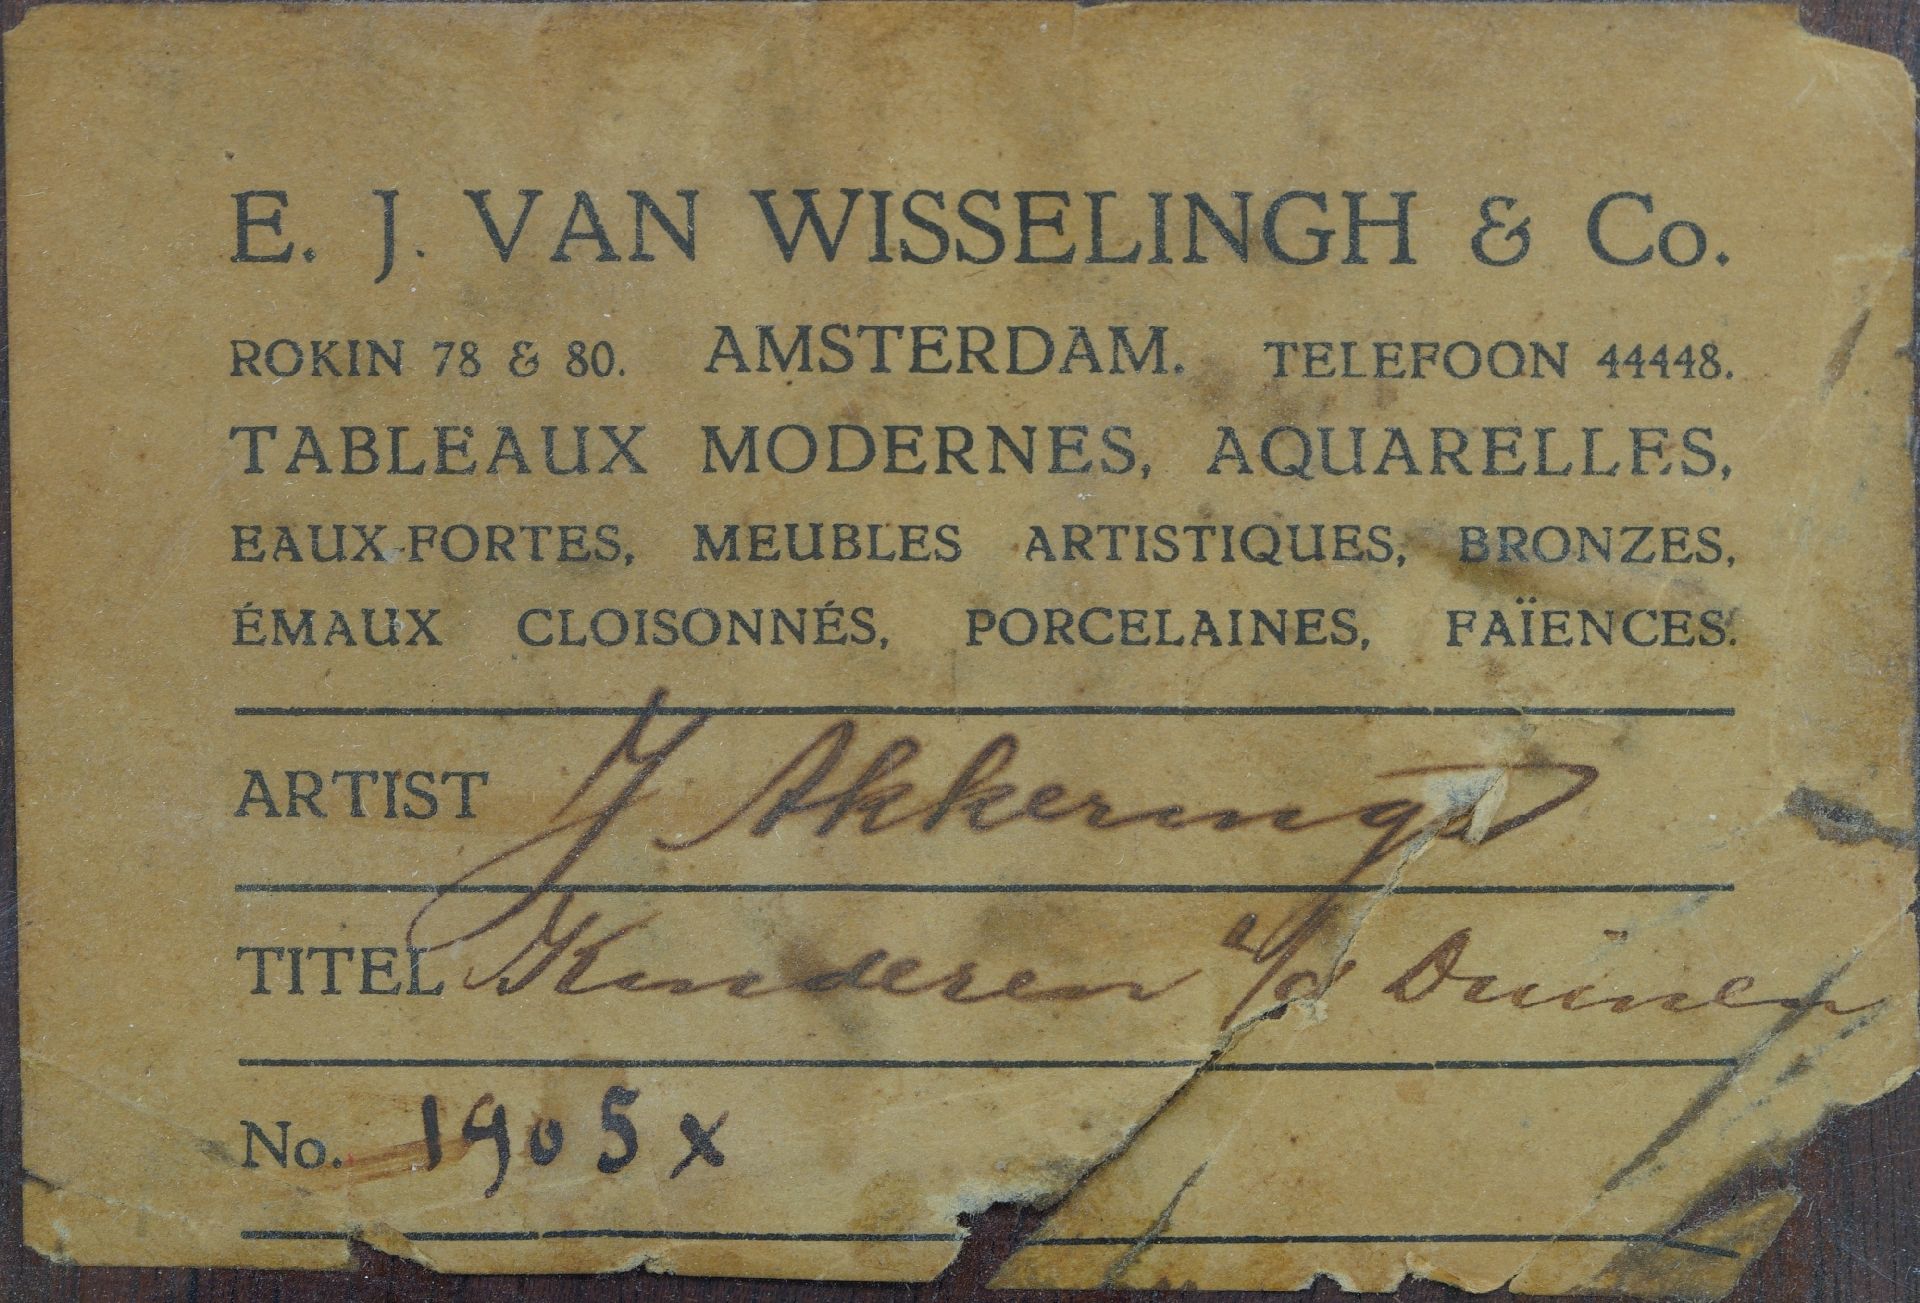 E. J. VAN WISSELINGH & Co.
ROKIN 78 & 80. AMSTERDAM. TELEFOON 44448.
TABLEAUX MODERNES, AQUARELLES,
EAUX-FORTES, MEUBLES ARTISTIQUES, BRONZES,
ÉMAUX CLOISONNÉS, PORCELAINES, FAÏENCES.
ARTIST J Akkeringa
TITEL Kinderen a/d Duinen
No. 1905 x